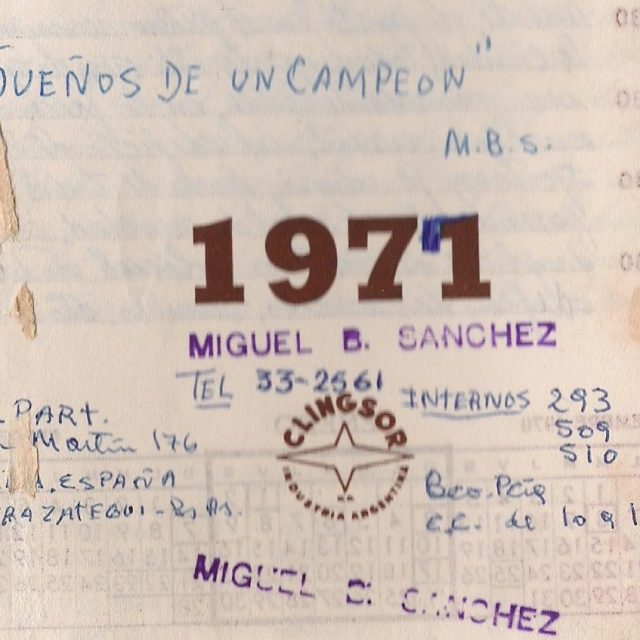 UEÑOS DE UN CAMPEON"
M.B.S.
1971
MIGUEL B. SANCHEZ
TEL 33-2561
INTERNOS 293
509
510
PART.
Martín 176
ESPAÑA
RAZATEGUI - Bs. As.
CLINGSOR
INDUSTRIA ARGENTINA
Bco. Pcia
c.c. de 10 a 1
MIGUEL B. SANCHEZ